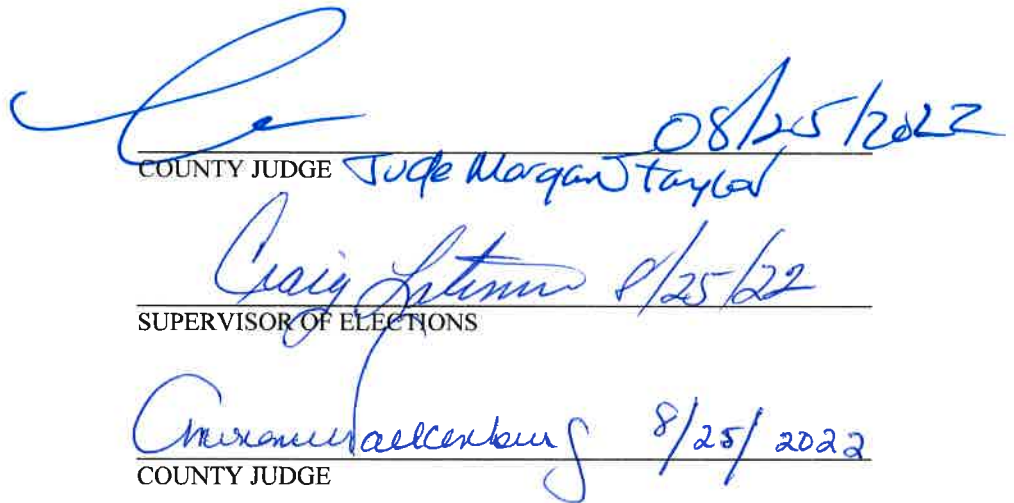 08/25/2022
COUNTY JUDGE Jude Morgan Taylor
Craig Latimer 8/25/22
SUPERVISOR OF ELECTIONS
8/25/2022
COUNTY JUDGE